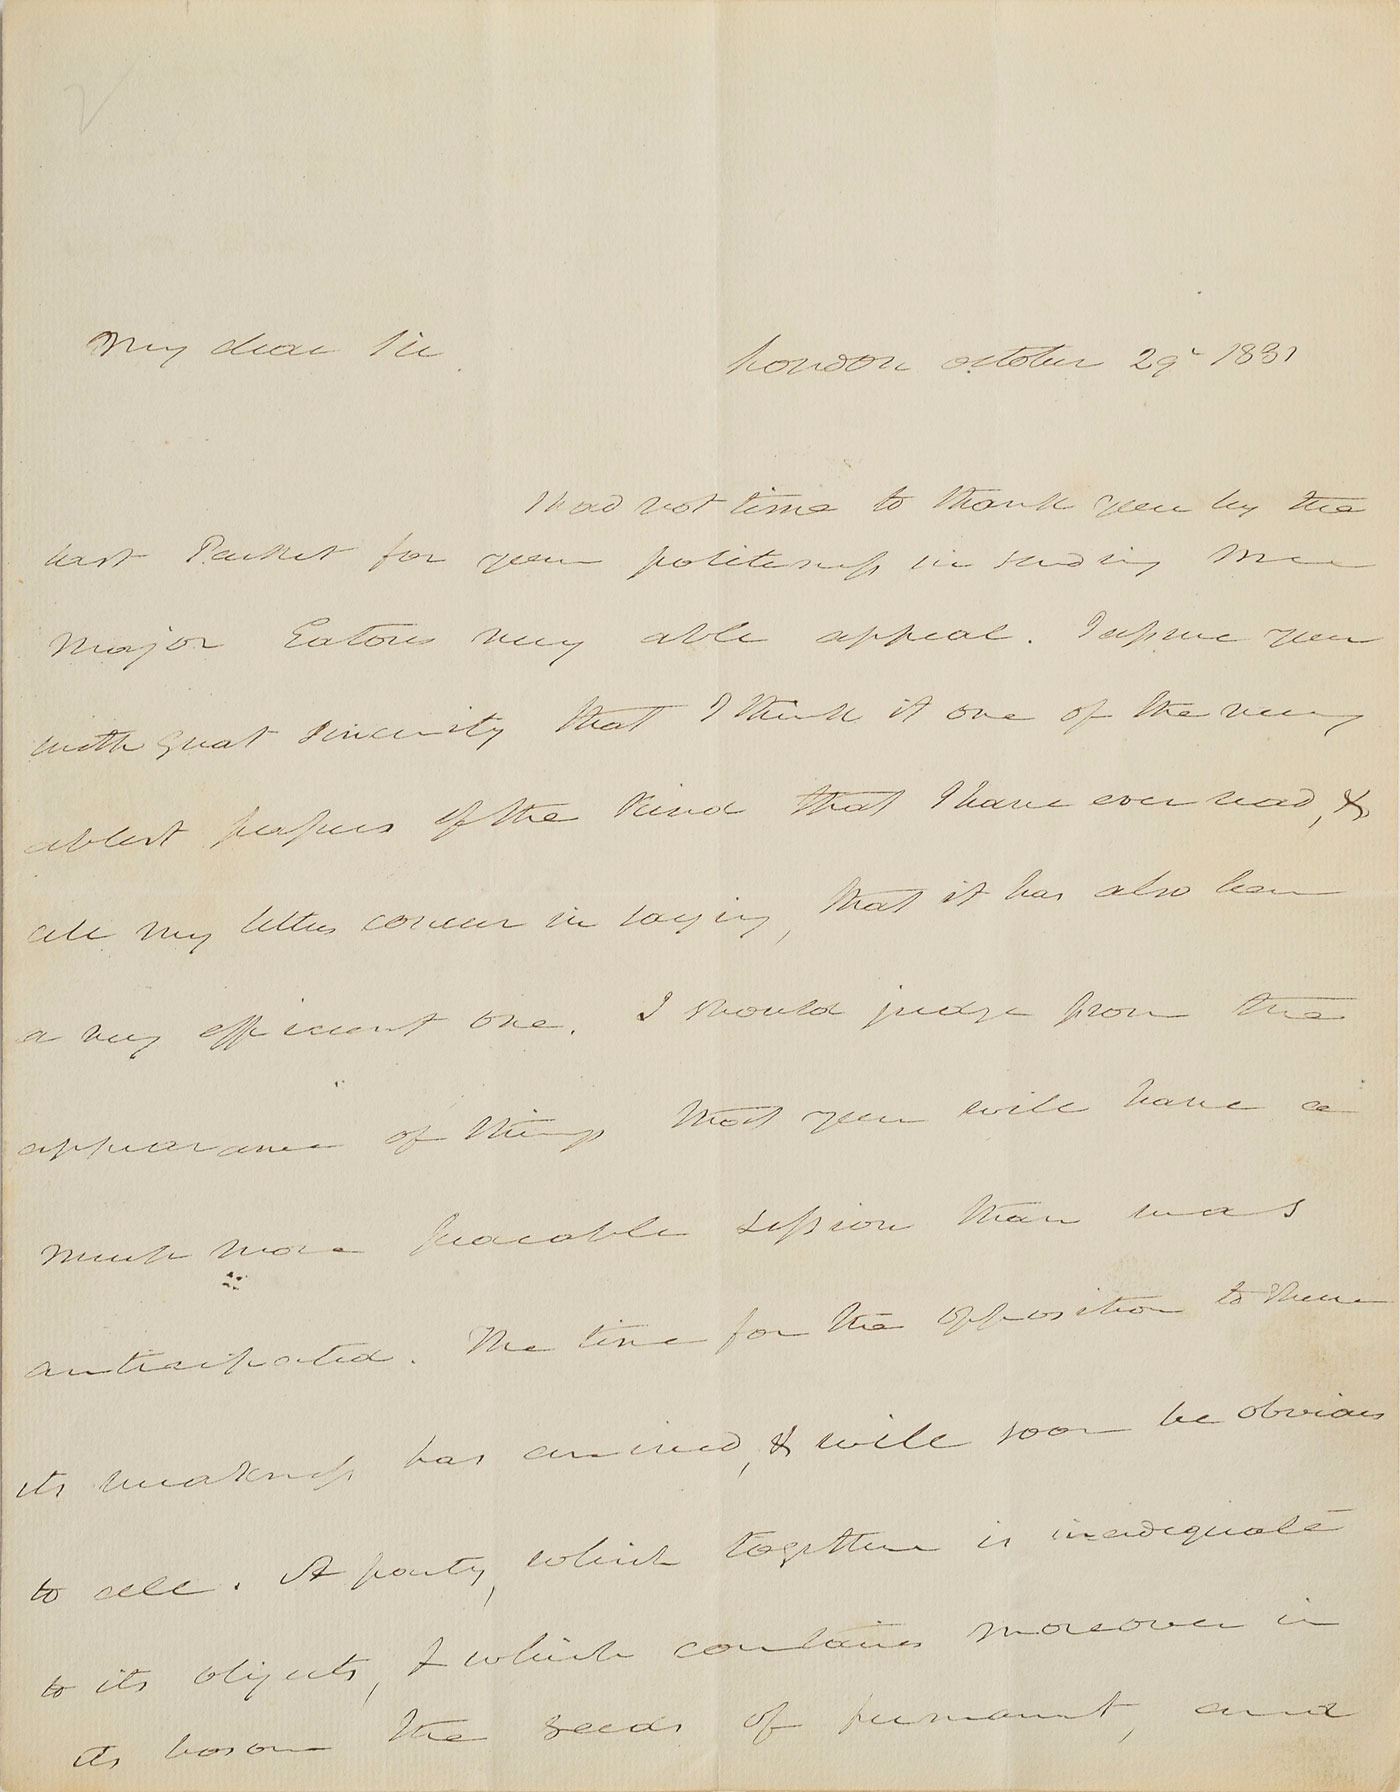 My dear Sir
London October 29th 1831
I had not time to thank you by the
last Packet for your politeness in sending me
Major Eatons very able appeal. I assure you
with great sincerity that I think it one of the very
ablest papers of the kind that I have ever read, &
all my letters concur in saying, that it has also been
a very efficient one. I should judge from the
appearance of things that you will have a
much more peaceable session than was
anticipated. The time for the opposition to
its weakness has arrived, & will soon be obvious
to all. A party, which together is inadequate
to its objects, & which contains moreover in
its bosom the seeds of permanent, and